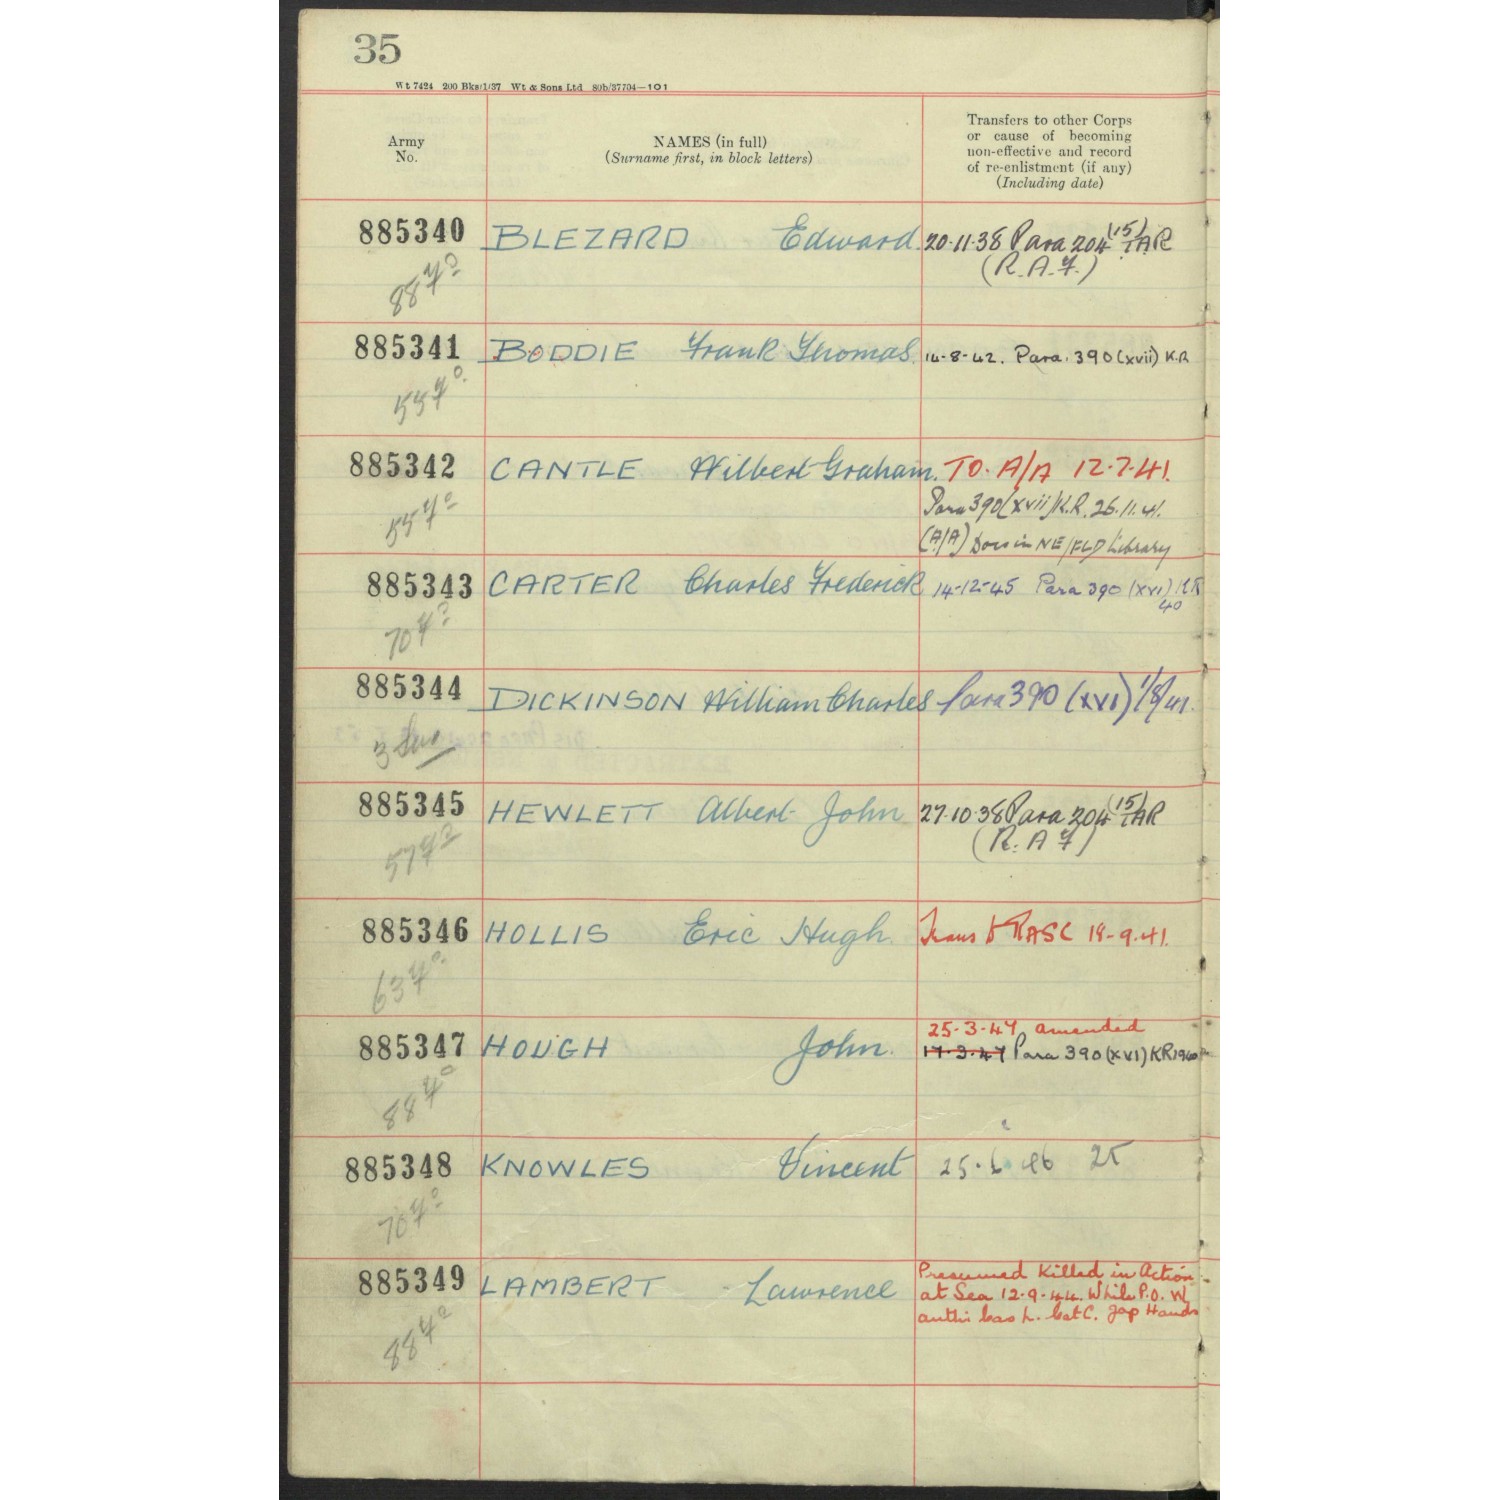 35
Wt 7424 200 Bks/1/37 Wt & Sons Ltd 80b/37704—101
Army
No.
NAMES (in full)
(Surname first, in block letters)
Transfers to other Corps
or cause of becoming
non-effective and record
of re-enlistment (if any)
(Including date)
885340 BLEZARD Edward 20.11.38 Para 204 (15) TAR
(R.A.F.)
88
885341 BODDIE Frank Thomas 14-8-42. Para. 390 (xvii) K.R
55
885342 CANTLE Wilbert Graham. TO. A/A 12.7.41.
Para 390 (xvii) K.R. 26.11.41.
55
(A/A) Docs in NE/FLD Library
885343 CARTER Charles Frederick 14-12-45 Para 390 (xvi) KR
40
70
885344 DICKINSON William Charles Para 390 (XVI) 1/8/41.
3
885345 HEWLETT Albert John 27.10.38 Para 204 (15) TAR
(R.A.F)
57
885346 HOLLIS Eric Hugh. Trans to RASC 18-9-41.
63
25.3.47 amended
885347 HOUGH John. 17.3.47 Para 390 (XVI) KR 1940
88
885348 KNOWLES Vincent 25. 6 46 25
70
885349 LAMBERT Lawrence Presumed Killed in Action
at Sea 12.9.44. While P.O.W
Cas L. Jap Hands
88